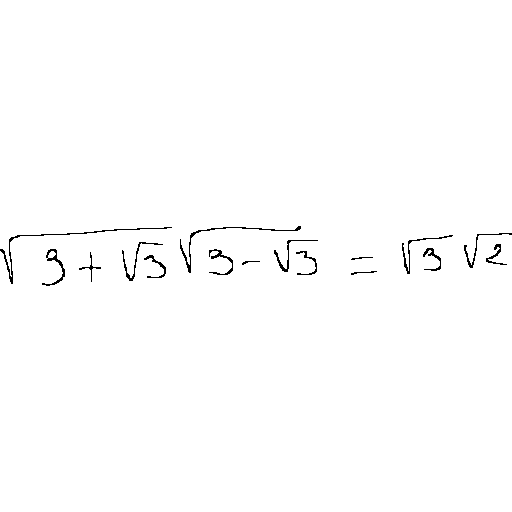 √(3 + √3) √(3 - √3) = √3 √2